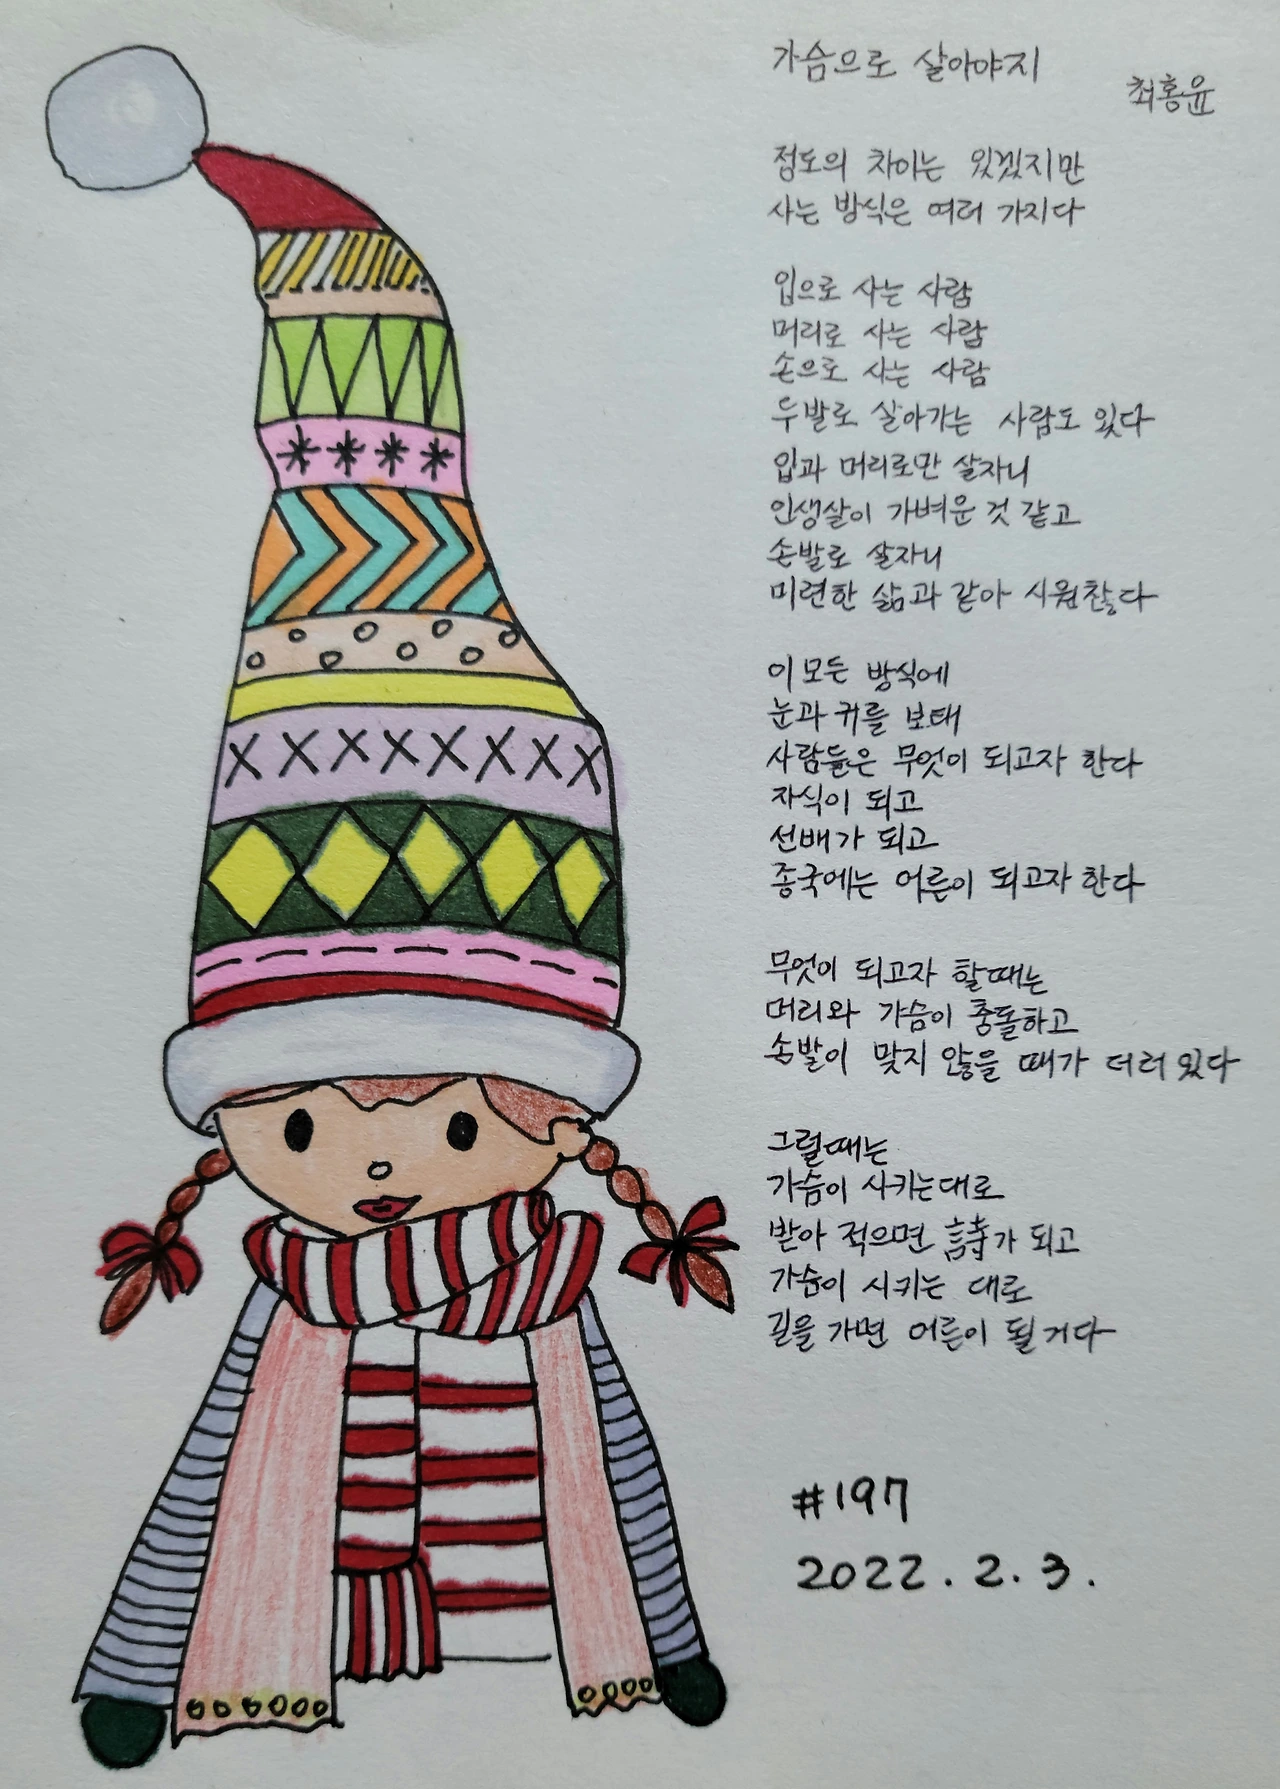 가슴으로 살아야지
최홍윤
정도의 차이는 있겠지만
사는 방식은 여러 가지다
입으로 사는 사람
머리로 사는 사람
손으로 사는 사람
두발로 살아가는 사람도 있다
입과 머리로만 살자니
인생살이 가벼운 것 같고
손발로 살자니
미련한 삶과 같아 시원찮다
이 모든 방식에
눈과 귀를 보태
사람들은 무엇이 되고자 한다
자식이 되고
선배가 되고
종국에는 어른이 되고자 한다
무엇이 되고자 할때는
머리와 가슴이 충돌하고
손발이 맞지 않을 때가 더러 있다
그럴때는
가슴이 시키는대로
받아 적으면 詩가 되고
가슴이 시키는 대로
길을 가면 어른이 될거다
#197
2022. 2. 3.